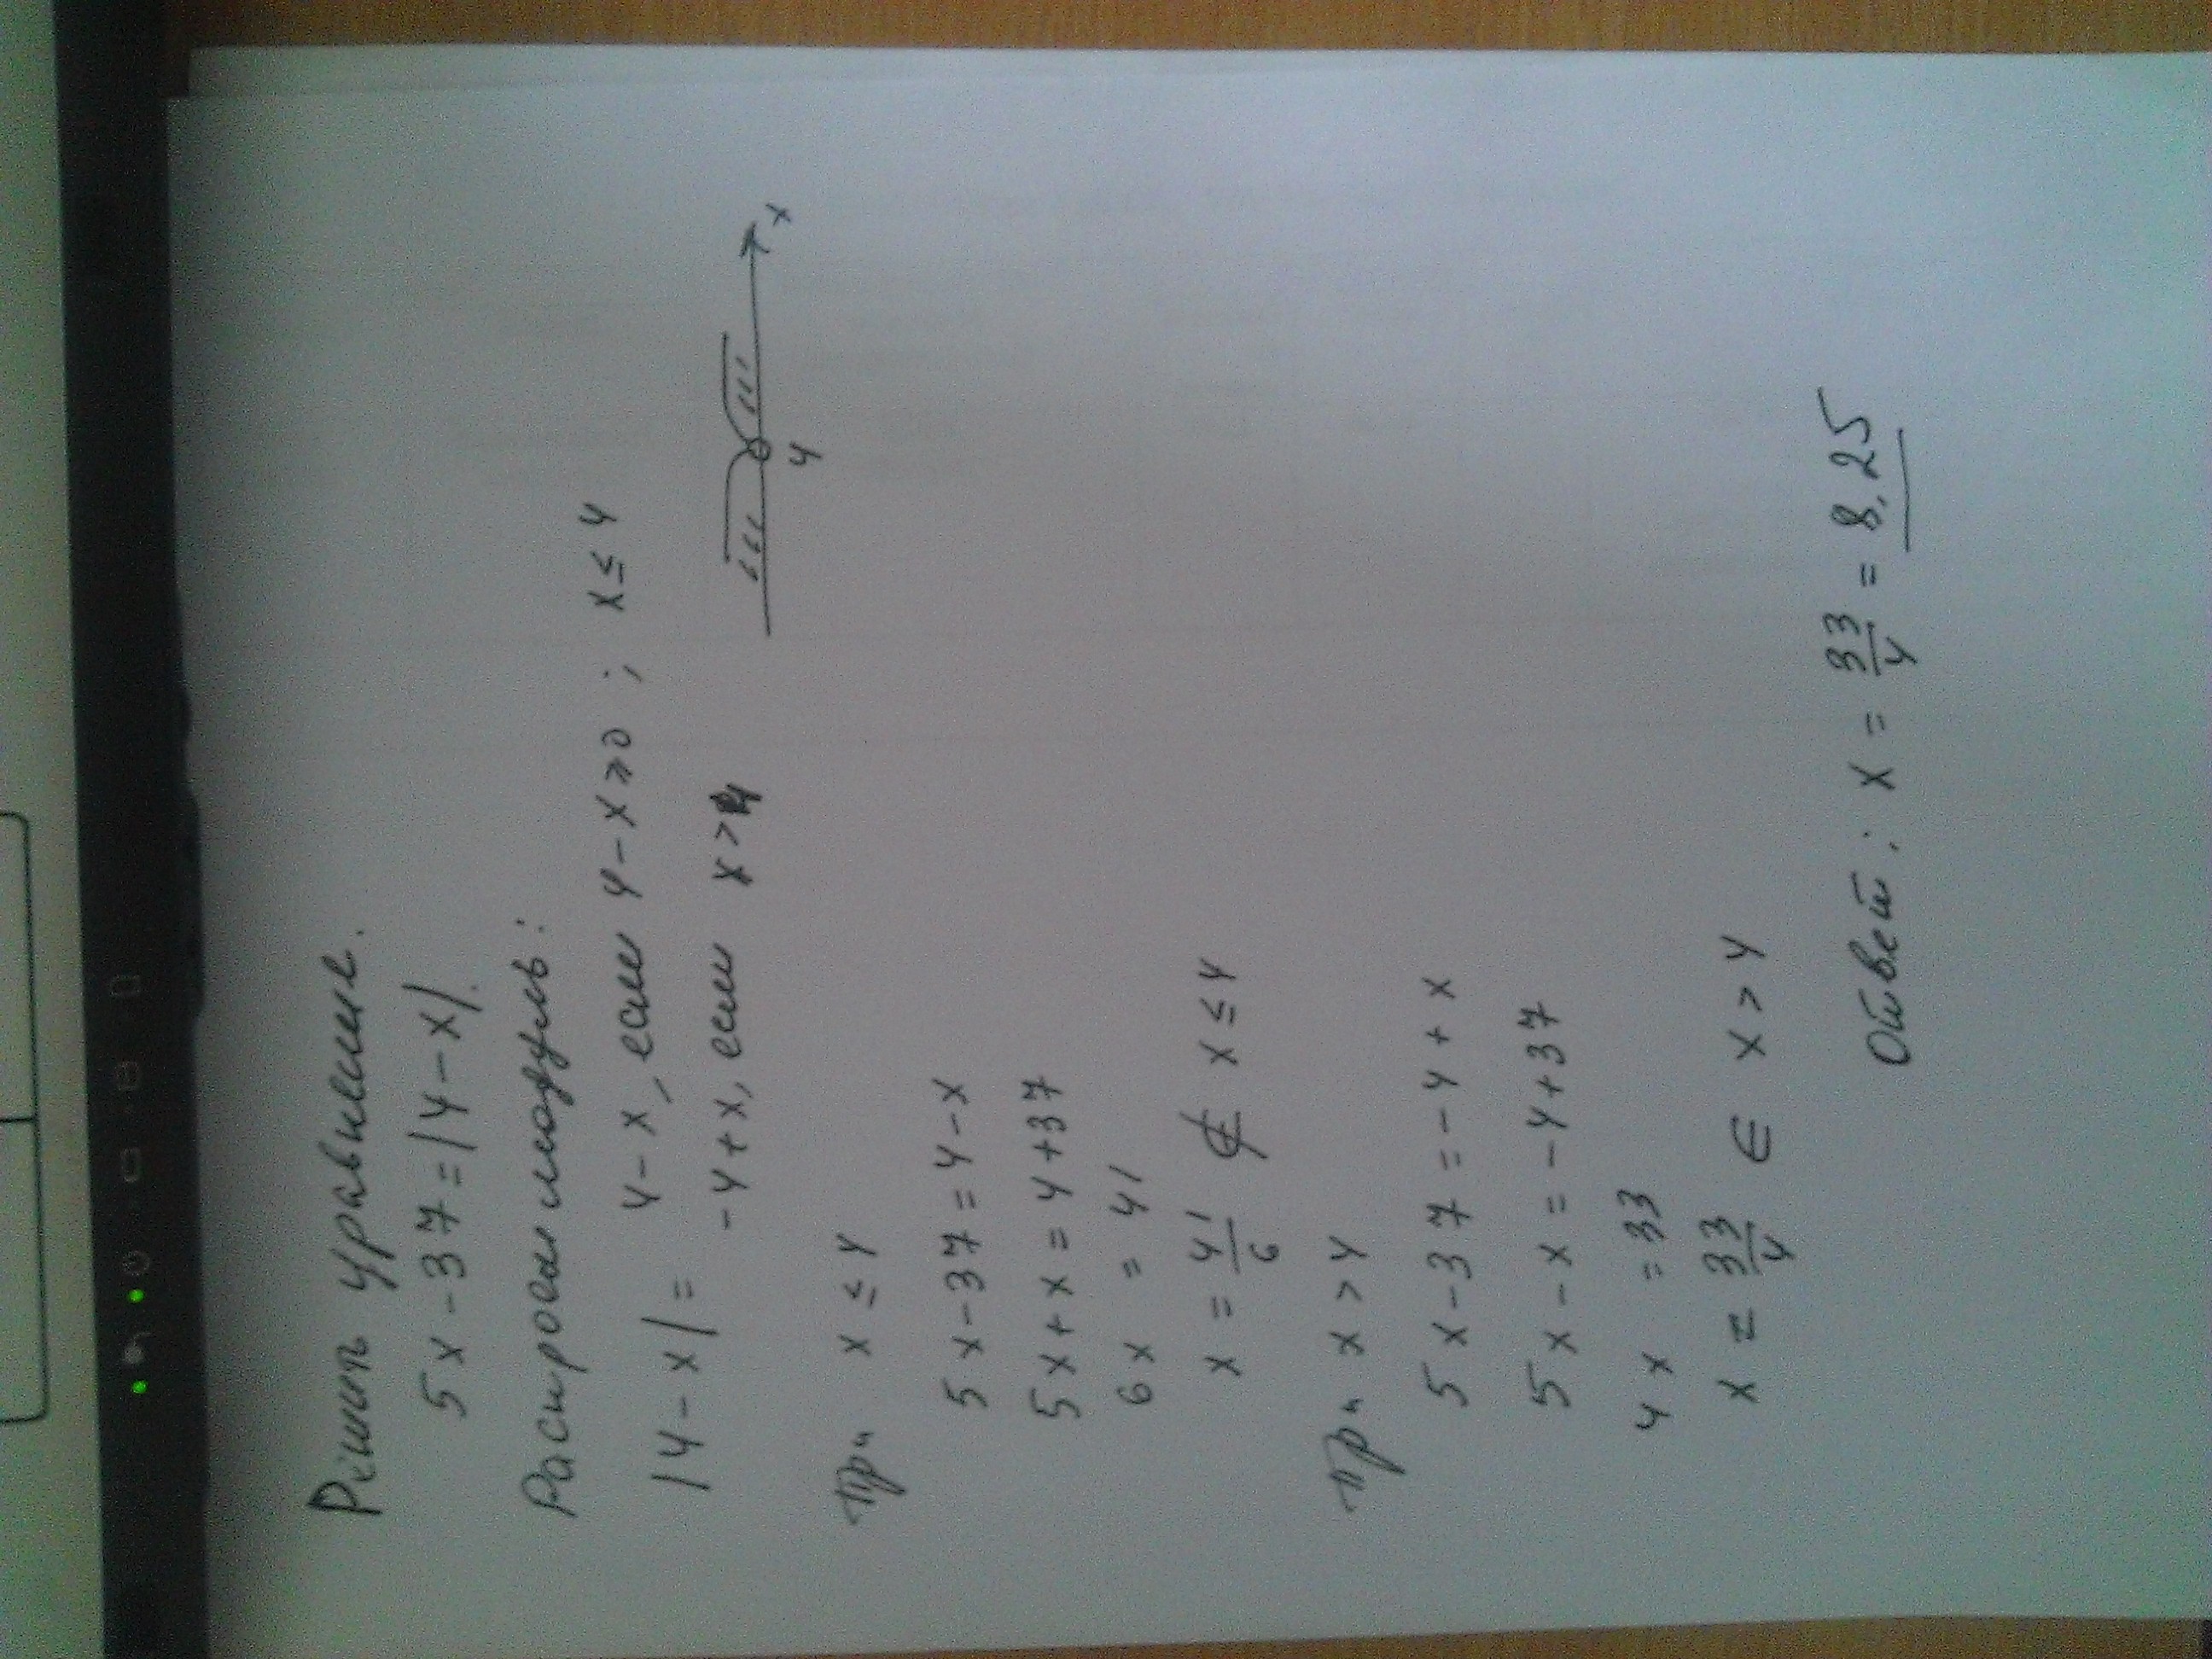 Решить уравнение.
5x - 37 = |4 - x|.
Раскроем модуль:
|4 - x| = 4 - x, если 4 - x ≥ 0 ; x ≤ 4
-4 + x, если x > 4
4 x
при x ≤ 4
5x - 37 = 4 - x
5x + x = 4 + 37
6x = 41
x = 41/6 ∉ x ≤ 4
при x > 4
5x - 37 = -4 + x
5x - x = -4 + 37
4x = 33
x = 33/4 ∈ x > 4
Ответ: x = 33/4 = 8,25